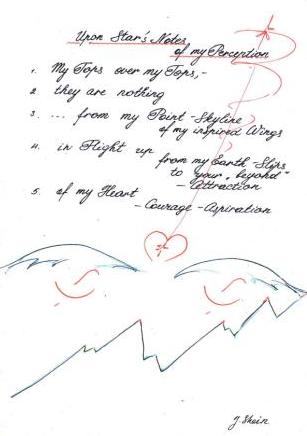 Upon Star's Notes
of my Perception
1. My Tops over my Tops,-
2 they are nothing
3. ... from my Point-Skyline
of my inspired Wings
4. in Flight up
from my Earth-Slips
to your „beyond"
-Attraction
5. of my Heart
-Courage-Aspiration
J. Shein